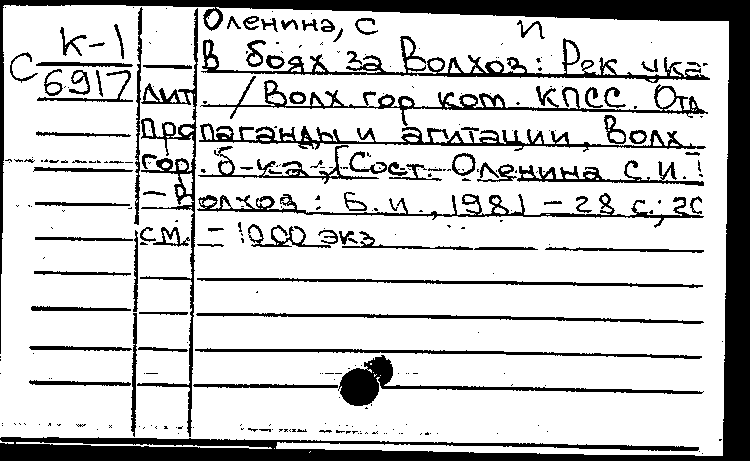 Оленина, С И
К-1
С 6917
В боях за Волхов: Рек. ука-
лит. / Волх. гор. ком. КПСС. Отд.
пропаганды и агитации, Волх.
гор. б-ка; [Сост. Оленина С.И.]
– Волхов: Б.и., 1981 – 28 с.; 20
см. – 1000 экз.